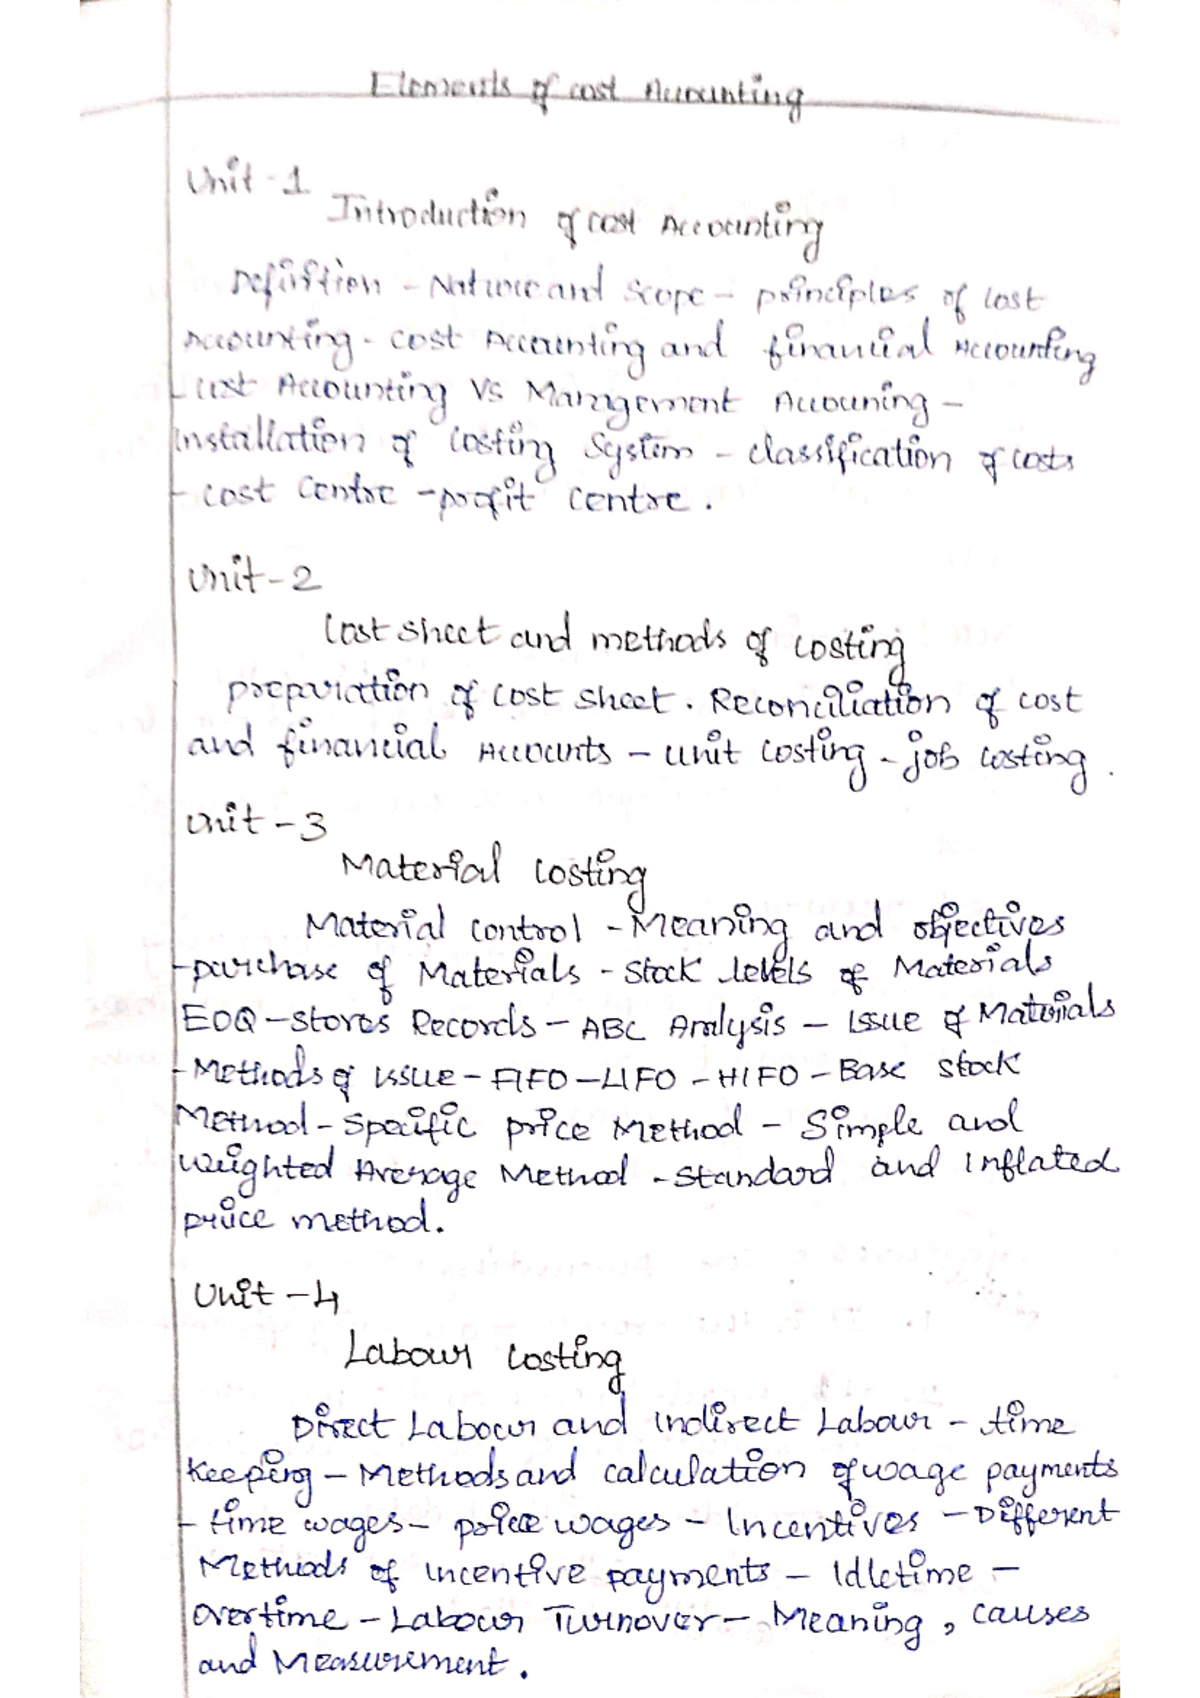 Elements of cost Accounting
Unit - 1
Introduction of cost Accounting
Definition - Nature and Scope - principles of cost
Accounting - cost Accounting and financial Accounting
- cost Accounting VS Management Accouning -
Installation of costing System - classification of costs
- cost centre - profit centre.
Unit - 2
Cost sheet and methods of costing
preparation of cost sheet. Reconciliation of cost
and financial Accounts - unit costing - job costing.
Unit - 3
Material costing
Material control - Meaning and objectives
- purchase of Materials - stock levels of Materials
EOQ - stores Records - ABC Analysis - Issue of Materials
- Methods of issue - FIFO - LIFO - HIFO - Base stock
Method - Specific price Method - Simple and
Weighted Average Method - Standard and Inflated
price method.
Unit - 4
Labour costing
Direct Labour and indirect Labour - time
Keeping - Methods and calculation of wage payments
- time wages - price wages - Incentives - Different
Methods of incentive payments - Idletime -
overtime - Labour Turnover - Meaning, causes
and Measurement.